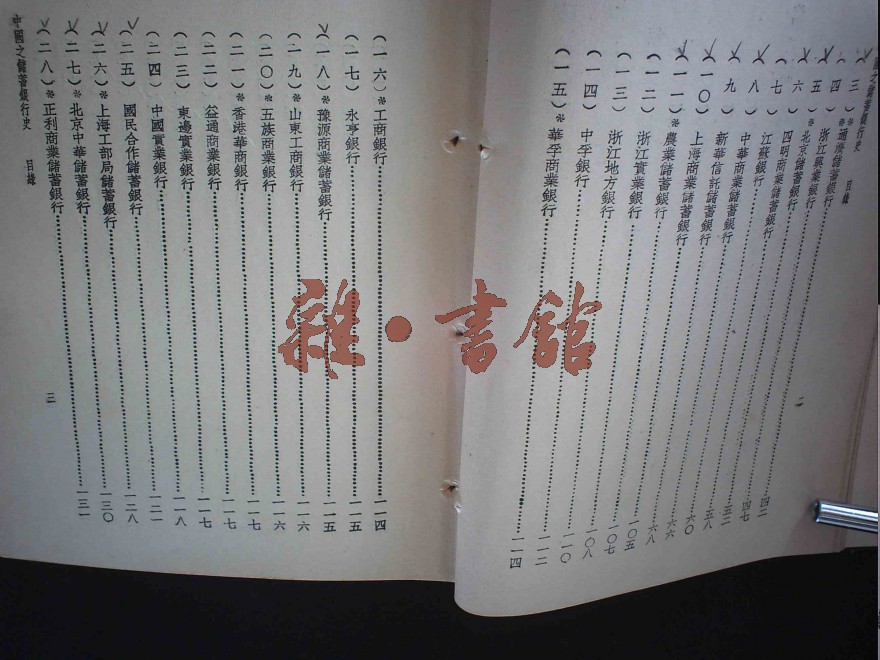 國之儲蓄銀行史 目錄
(三)*通濟儲蓄銀行……四二
(四)*浙江興業銀行……四七
(五)*北京儲蓄銀行……五二
(六)四明商業儲蓄銀行……五八
(七)江蘇銀行……六〇
(八)中華商業儲蓄銀行……六六
(九)新華信託儲蓄銀行……六八
(一〇)上海商業儲蓄銀行……一〇五
(一一)*農業儲蓄銀行……一〇七
(一二)浙江實業銀行……一〇八
(一三)浙江地方銀行……一一〇
(一四)中孚銀行……一一二
(一五)*華孚商業銀行……一一四
二
(一六)*工商銀行……一一四
(一七)永亨銀行……一一五
(一八)*豫源商業儲蓄銀行……一一五
(一九)*山東工商銀行……一一六
(二〇)*五族商業銀行……一一六
(二一)*香港華商銀行……一一七
(二二)益通商業銀行……一一七
(二三)東邊實業銀行……一一七
(二四)中國實業銀行……一一八
(二五)國民合作儲蓄銀行……一二一
(二六)*上海工部局儲蓄銀行……一二八
(二七)*北京中華儲蓄銀行……一三〇
(二八)*正利商業儲蓄銀行……一三一
中國之儲蓄銀行史 目錄
三
雜·書館